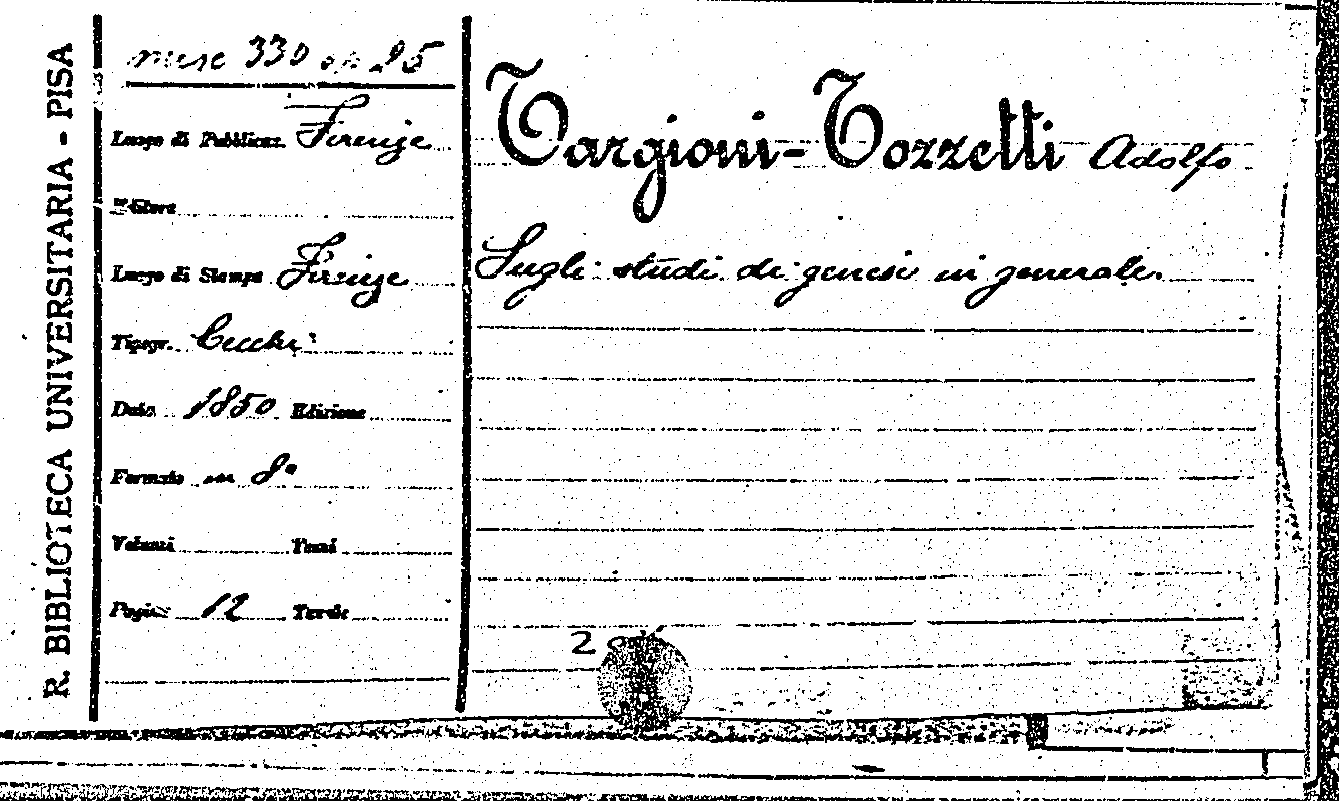 R. BIBLIOTECA UNIVERSITARIA - PISA
misc 330 op 25
Luogo di Pubblicaz. Firenze
Editore
Luogo di Stampa Firenze
Tipogr. Cecchi
Data 1850 Edizione
Formato in 8º
Volumi Tomi
Pagine 12 Tavole
Targioni-Tozzetti Adolfo
Sugli studi di genesi in generale.
2